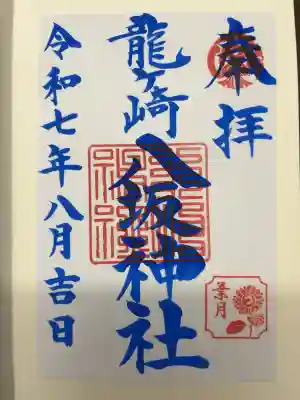 奉拝
龍ヶ崎
八坂神社
葉月
令和七年八月吉日